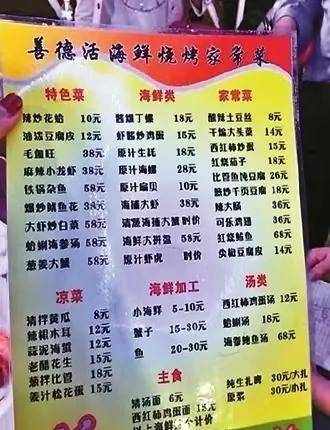 善德活海鲜烧烤家常菜
特色菜
辣炒花蛤 10元
油泼豆腐皮 12元
毛血旺 38元
麻辣小龙虾 38元
铁锅杂鱼 58元
爆炒鱿鱼花 38元
大虾炒白菜 58元
蛤蜊海参汤 58元
葱姜大蟹 58元
海鲜类
酱爆丁螺 18元
虾酱炒鸡蛋 15元
原汁生蚝 18元
原汁海螺 28元
原汁扇贝 10元
海捕大虾 38元
清蒸海捕大蟹 时价
海鲜大拼盘 58元
原汁虾虎 时价
家常菜
酸辣土豆丝 8元
干煸大头菜 15元
西红柿炒蛋 15元
红烧茄子 18元
比管鱼炖豆腐 26元
脆炒千页豆腐 18元
辣大肠 36元
可乐鸡翅 36元
红烧鲅鱼 68元
尖椒豆腐皮 14元
凉菜
清拌黄瓜 8元
辣根木耳 12元
蒜泥海蜇 12元
老醋花生 15元
葱拌比管 18元
姜汁松花蛋 15元
海鲜加工
小海鲜 5-10元
蟹子 15-30元
鱼 20-30元
主食
清汤面 6元
西红柿鸡蛋面 18元
汤类
西红柿鸡蛋汤 12元
蛤蜊汤 18元
海参鲍鱼汤 68元
纯生扎啤 30元/大扎
原浆 30元/小扎